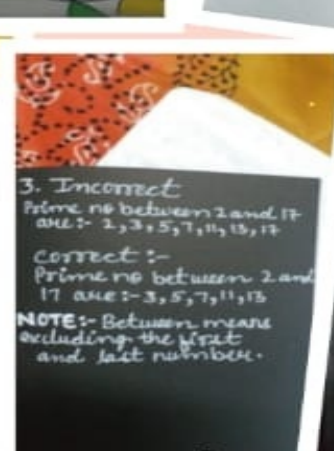 3. Incorrect
Prime no between 2 and 17
are:- 2,3,5,7,11,13,17
correct :-
Prime no between 2 and
17 are:- 3,5,7,11,13
NOTE:- Between means
excluding the first
and last number.